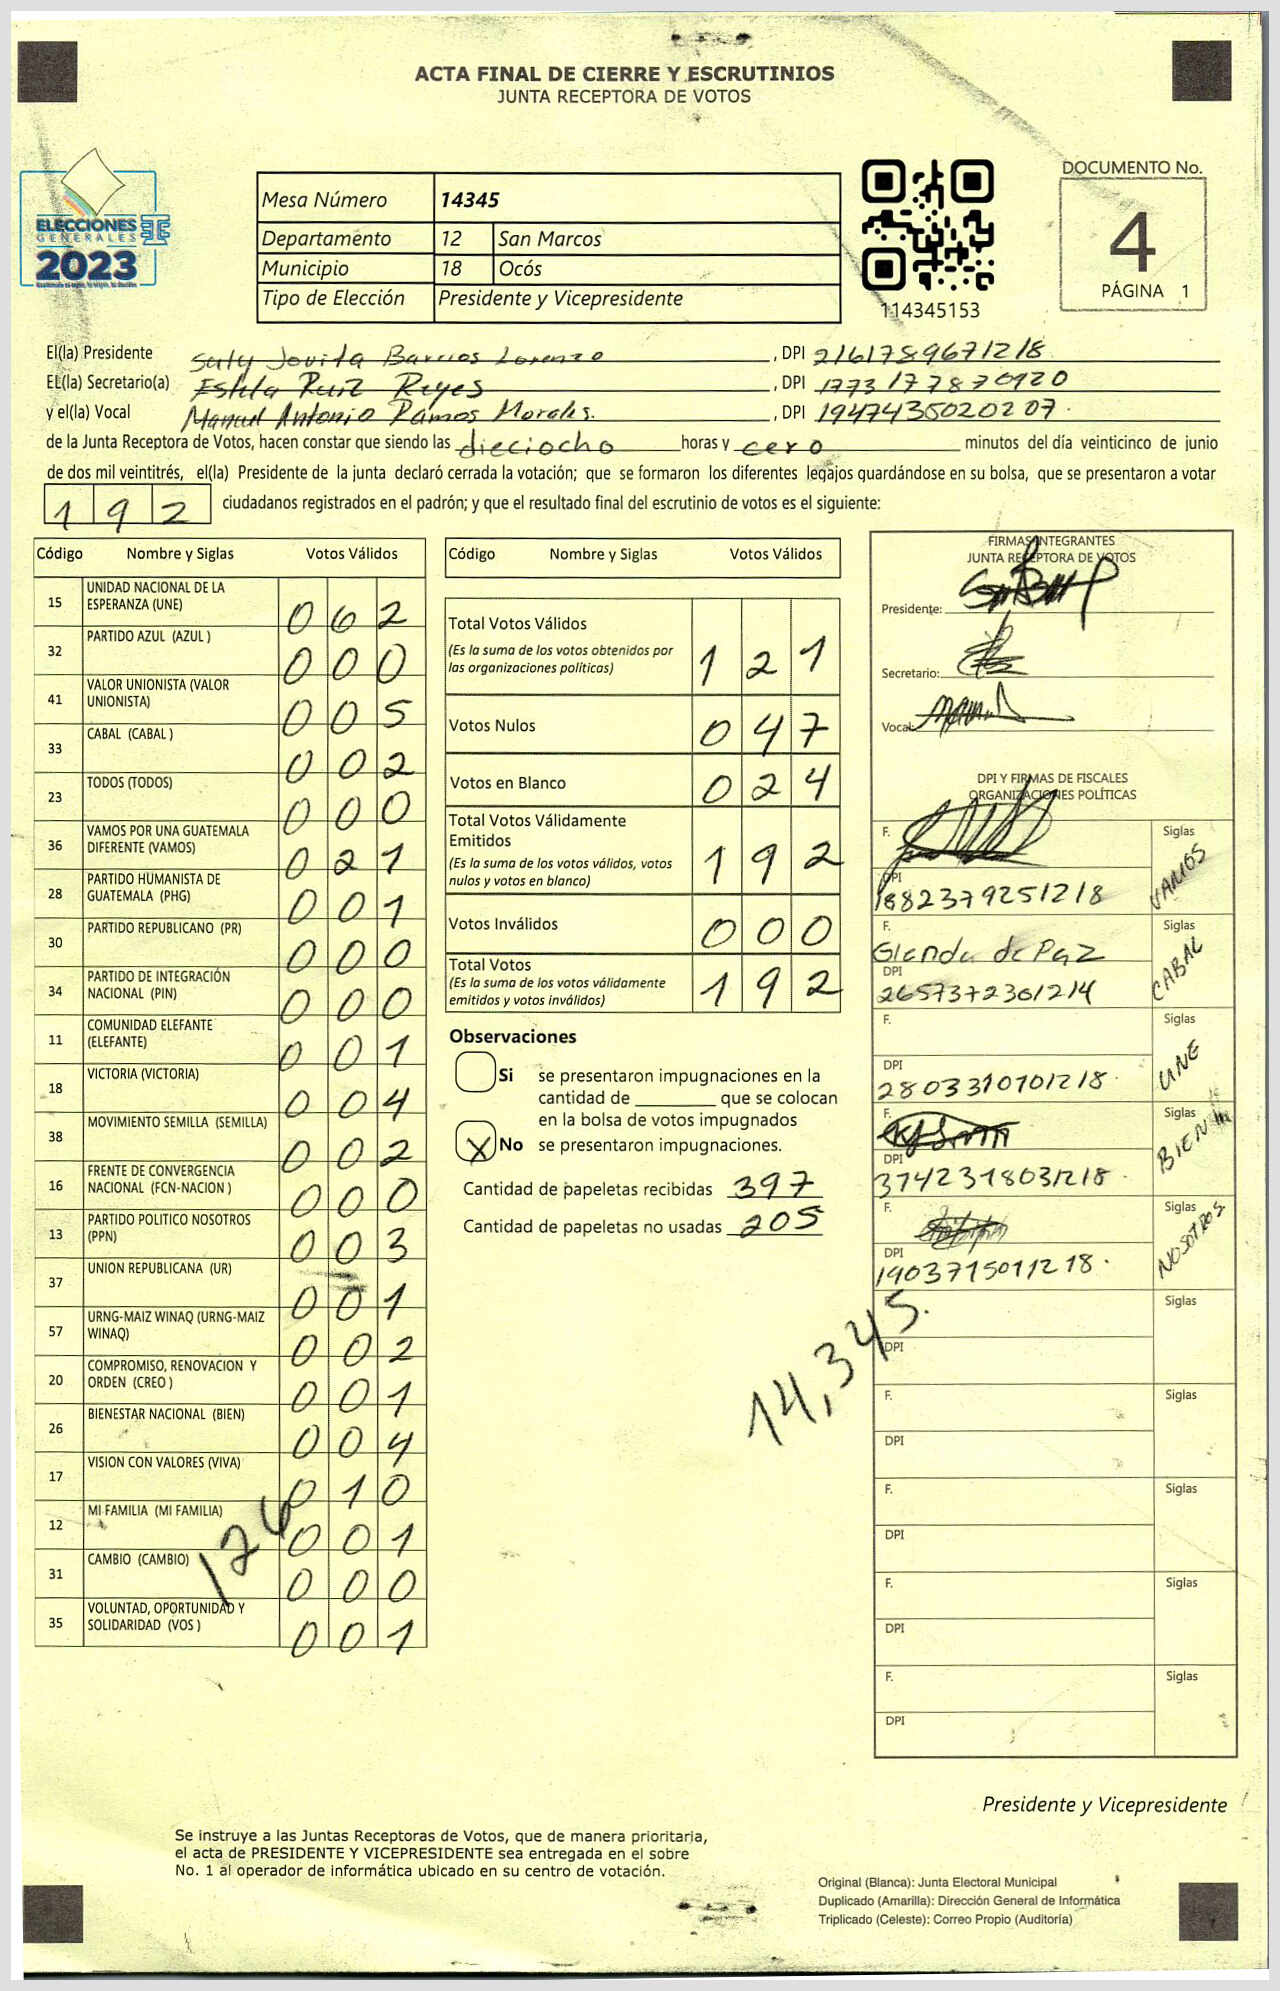 ACTA FINAL DE CIERRE Y ESCRUTINIOS
JUNTA RECEPTORA DE VOTOS
ELECCIONES
GENERALES
2023
Mesa Número 14345
Departamento 12 San Marcos
Municipio 18 Ocós
Tipo de Elección Presidente y Vicepresidente
114345153
DOCUMENTO No.
4
PÁGINA 1
El(la) Presidente Jovita Barrios Lorenzo, DPI 2161789671218
EL(la) Secretario(a) Estela Ruiz Reyes, DPI
y el(la) Vocal Manuel Antonio Ramos Morales., DPI 1947435020207.
de la Junta Receptora de Votos, hacen constar que siendo las dieciocho horas y cero minutos del día veinticinco de junio
de dos mil veintitrés, el(la) Presidente de la junta declaró cerrada la votación; que se formaron los diferentes legajos guardándose en su bolsa, que se presentaron a votar
192 ciudadanos registrados en el padrón; y que el resultado final del escrutinio de votos es el siguiente:
Código Nombre y Siglas Votos Válidos
15 UNIDAD NACIONAL DE LA ESPERANZA (UNE) 062
32 PARTIDO AZUL (AZUL ) 000
41 VALOR UNIONISTA (VALOR UNIONISTA) 005
33 CABAL (CABAL ) 002
23 TODOS (TODOS) 000
36 VAMOS POR UNA GUATEMALA DIFERENTE (VAMOS) 021
28 PARTIDO HUMANISTA DE GUATEMALA (PHG) 001
30 PARTIDO REPUBLICANO (PR) 000
34 PARTIDO DE INTEGRACIÓN NACIONAL (PIN) 000
11 COMUNIDAD ELEFANTE (ELEFANTE) 001
18 VICTORIA (VICTORIA) 004
38 MOVIMIENTO SEMILLA (SEMILLA) 002
16 FRENTE DE CONVERGENCIA NACIONAL (FCN-NACION ) 000
13 PARTIDO POLITICO NOSOTROS (PPN) 003
37 UNION REPUBLICANA (UR) 001
57 URNG-MAIZ WINAQ (URNG-MAIZ WINAQ) 002
20 COMPROMISO, RENOVACION Y ORDEN (CREO ) 001
26 BIENESTAR NACIONAL (BIEN) 004
17 VISION CON VALORES (VIVA) 010
12 MI FAMILIA (MI FAMILIA) 001
31 CAMBIO (CAMBIO) 000
35 VOLUNTAD, OPORTUNIDAD Y SOLIDARIDAD (VOS ) 001
Código Nombre y Siglas Votos Válidos
Total Votos Válidos
(Es la suma de los votos obtenidos por las organizaciones políticas) 121
Votos Nulos 047
Votos en Blanco 024
Total Votos Válidamente Emitidos
(Es la suma de los votos válidos, votos nulos y votos en blanco) 192
Votos Inválidos 000
Total Votos
(Es la suma de los votos válidamente emitidos y votos inválidos) 192
Observaciones
Si se presentaron impugnaciones en la
cantidad de ________ que se colocan
en la bolsa de votos impugnados
X No se presentaron impugnaciones.
Cantidad de papeletas recibidas 397
Cantidad de papeletas no usadas 205
14,345.
FIRMAS INTEGRANTES
JUNTA RECEPTORA DE VOTOS
Presidente:
Secretario:
Vocal:
DPI Y FIRMAS DE FISCALES
ORGANIZACIONES POLÍTICAS
F. Siglas VAMOS
DPI 1882379251218
F. Glenda de Paz Siglas CABAL
DPI 2657372301214
F. Siglas UNE
DPI 2803310701218.
F. Siglas BIEN
DPI 3742318031218.
F. Siglas NOSOTROS
DPI 1903715011218.
F. Siglas
DPI
F. Siglas
DPI
F. Siglas
DPI
F. Siglas
DPI
F. Siglas
DPI
Presidente y Vicepresidente
Se instruye a las Juntas Receptoras de Votos, que de manera prioritaria,
el acta de PRESIDENTE Y VICEPRESIDENTE sea entregada en el sobre
No. 1 al operador de informática ubicado en su centro de votación.
Original (Blanca): Junta Electoral Municipal
Duplicado (Amarilla): Dirección General de Informática
Triplicado (Celeste): Correo Propio (Auditoría)